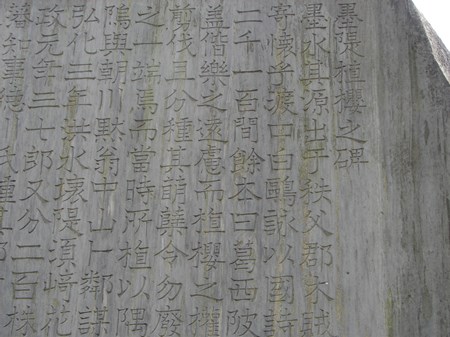 墨隄植櫻之碑
墨水其源出于秩父郡木賊
寄懷乎 口白鷗詠以國詩
二千一百間餘本曰葛西陂
蓋偕樂之遠慮而植櫻之權
剪伐且分種其萠蘖令勿廢
之一端焉而當時所植以隅
與朝川黙翁中山 鄰謀
弘化三年洪水壞隄須崎花
政元年三七郎又分二百株
知事德 氏種其